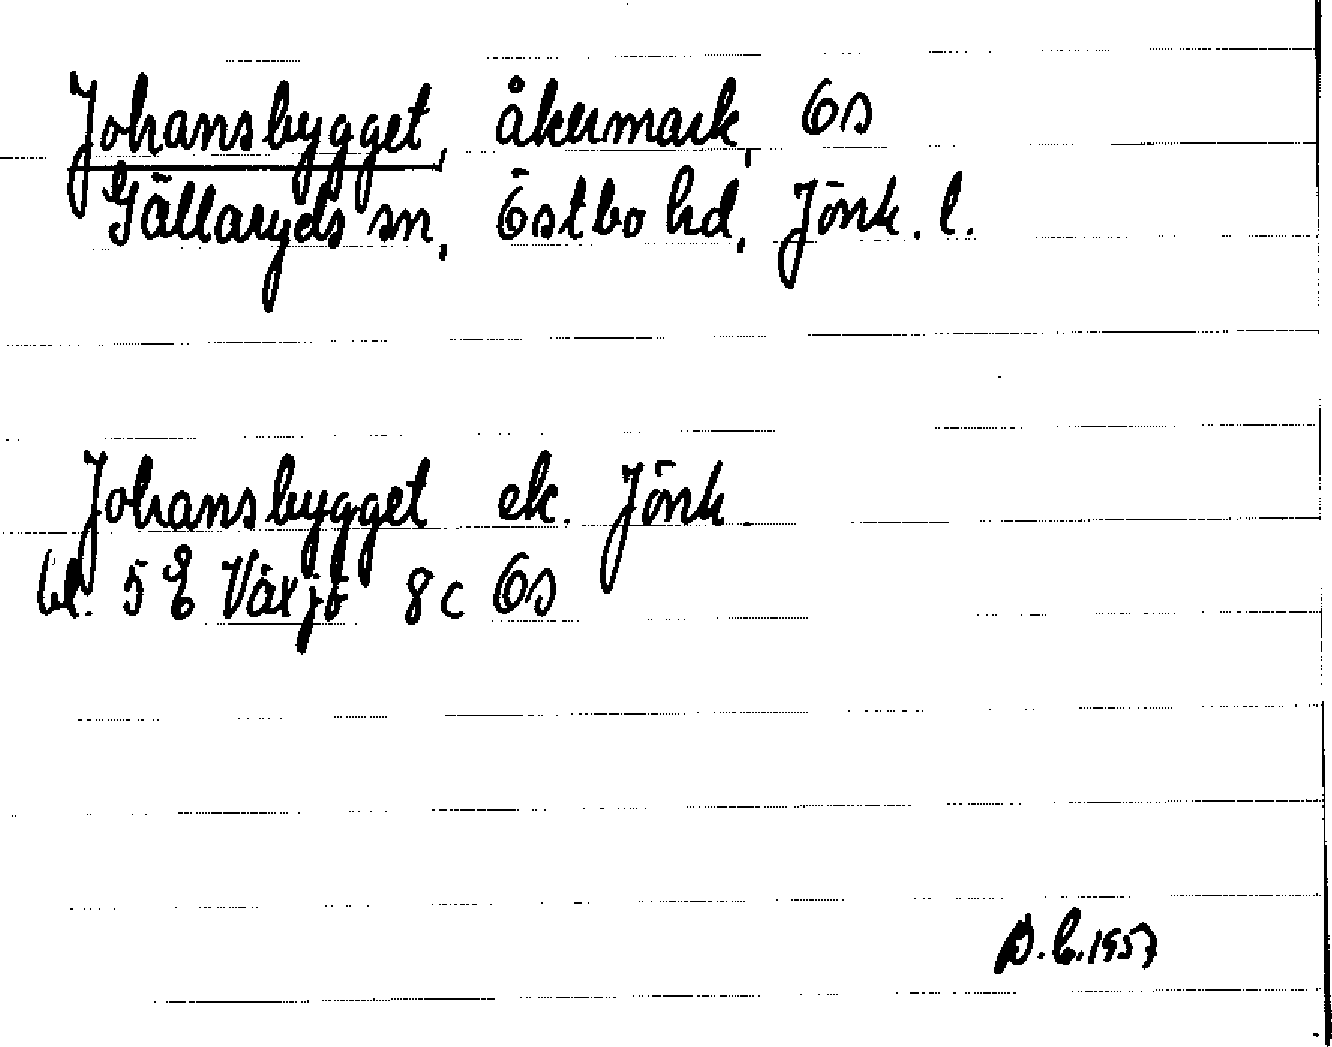 Johansbygget, åkermark, Ös
Gällaryds sn, Östbo hd, Jönk. l.
Johansbygget ek. Jönk
bl. 5 E Växjö 8c Ös
B.E. 1957